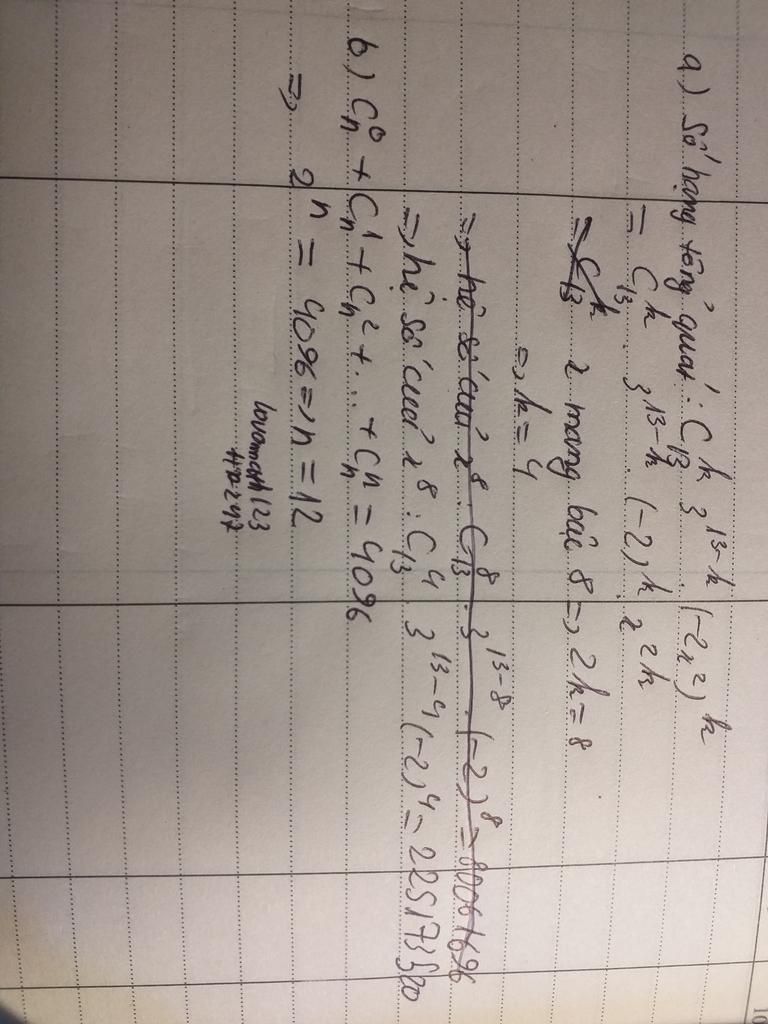 a) Số hạng tổng quát: C₁₃ᵏ 3¹³⁻ᵏ. (-2x²)ᵏ
= C₁₃ᵏ. 3¹³⁻ᵏ. (-2)ᵏ. x²ᵏ
=> C₁₃ᵏ x mang bậc 8 => 2k = 8
=> k = 4
=> hệ số cuả x⁸: C₁₃⁸. 3¹³⁻⁸. (-2)⁸ = 80061696
=> hệ số cuả x⁸: C₁₃⁴ 3¹³⁻⁴ (-2)⁴ = 225173520
b) Cₙ⁰ + Cₙ¹ + Cₙ² + ... + Cₙⁿ = 4096
=> 2ⁿ = 4096 => n = 12